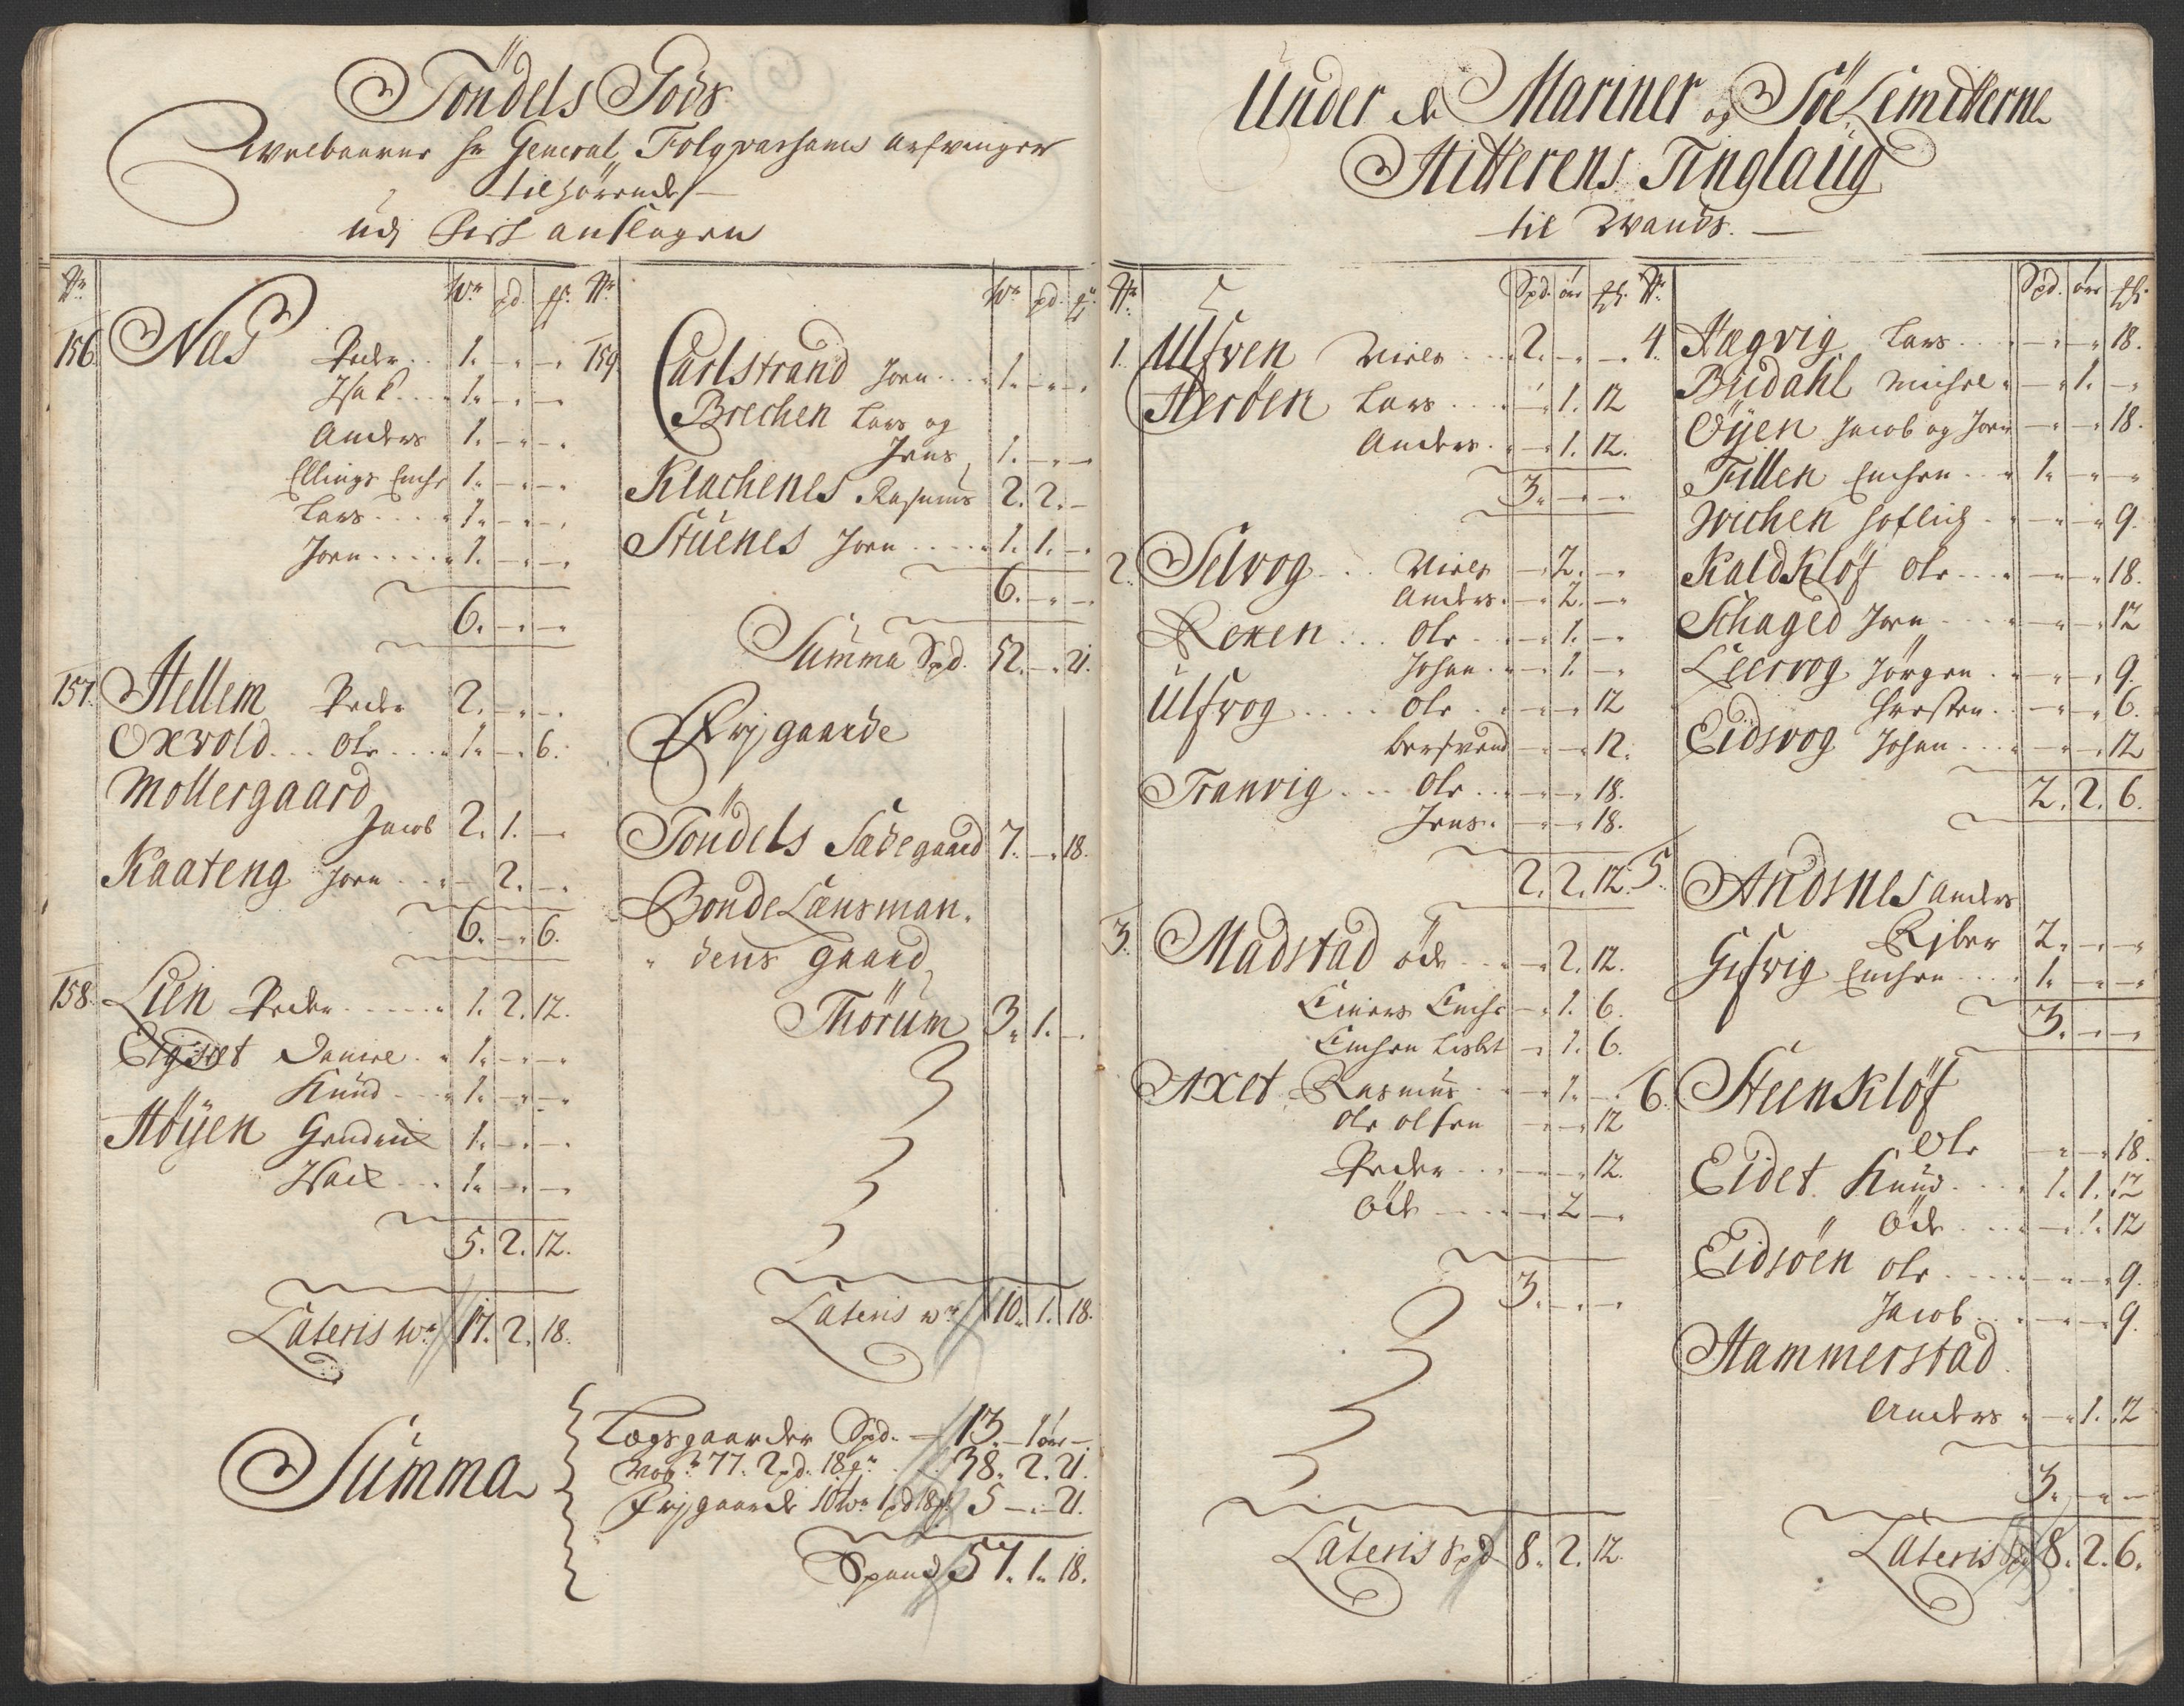 Töndels Gods
Welbaarne Hr General Tolgvarhanns Arfvinger
tilhörende
udj Fisk anslagen
No Wr pd. fr.
156. Nas Peder .. 1. - -
Isak ... 1. - -
Anders 1. - -
Ellings Enche 1. - -
Lars .... 1. - -
Joen .... 1. - -
6. - -
157. Hellem Peder 2. - -
Oxvold .. Ole ... 1. - 6.
Mollergaard
Jacob 2. 1. -
Kaateng Joen .. - 2. -
6. - 6.
158. Lien Peder ..... 1. 2. 12.
Elgset Daniel . 1. - -
Knud ... 1. - -
Höyen 1. - -
Isach ... 1. - -
5. 2. 12.
Lateris Wr 17. 2. 18.
No Wr pd. fr.
159. Carlstrand Joen ... 1. - -
Brechen Lars og
Jens, 1. - -
Klachenes Rasmus 2. 2. -
Stuenes Joen ..... 1. 1. -
6. - -
Summa Spd. 52. - 21.
Frijgaarde
Töndels Sædegaard 7. - 18.
Bonde Lænsman-
dens gaard
Thörum 3. 1. -
Lateris Wr 10. 1. 18.
Summa
Lægsgaarder Spd. - 13. - 1 ör -
Wog 77. 2 pd. 18 fr. 38. 2. 21.
Frijgaarde 10 Wr 1 pd 18 fr. 5 - 21.
Spand 57. 1. 18.
Under de Mariner og Söe Limitterne
Hitterens Tinglaug
til Wands.
No Spd. öre fr.
1. Ulfven Niels ... 2. - -
Heröen Lars .... - 1. 12
Anders . - 1. 12.
3. - -
2. Selvog ... Niels - 2. -
Anders . - 2. -
Rexen ... Ole .. - 1. -
Johan .. - 1. -
Ulfvog .... Ole .. - - 12
Bersvend - - 12.
Tranvig ... Ole .. - - 18.
Jens . - - 18.
2. 2. 12.
3. Madstad öde ... - 2. 12.
Einers Enche - 1. 6.
Enchen Lisbet - 1. 6.
Axet Rasmus .. - 1. -
Ole Olsen - - 12
Peder ... - - 12.
Öde .... - 2 -
3. - -
Lateris Spd 8. 2. 12.
No Spd. öre fr.
4. Hægvig Lars ... - - 18.
Budahl Michel . - 1. -
Öyen Jacob og Joen - - 18.
Fillen Enchen .. 1. - -
Wichen - - 9.
Kaldklöf Ole ... - - 18.
Schaged Joen ... - - 12
Leervog Jörgen . - - 9.
Christen . - - 6.
Eidsvog Johan ... - - 12
2. 2. 6.
5. Andsnes Anders
Rjber 2. - -
Gifvig Enchen .... 1. - -
3. - -
6. Steenklöf
Ole - - 18.
Eidet Knud .... 1. 1. 12
Öde .... - 1. 12
Eidsöen Ole .... - - 9.
Jacob .. - - 9.
Hammerstad
Anders . - 1. 12
3. - -
Lateris Spd 8. 2. 6.